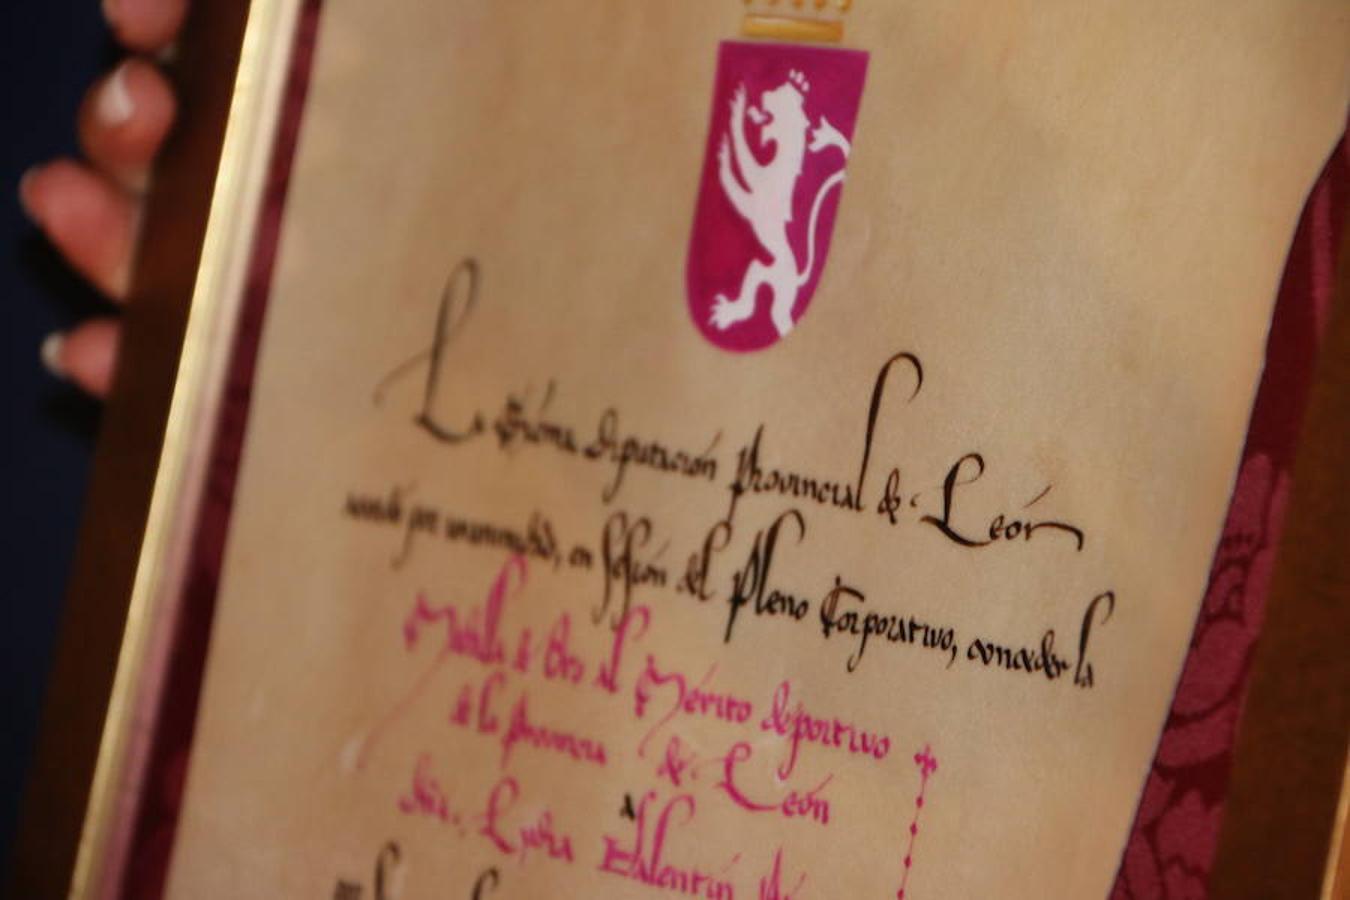 La Excma Diputación Provincial de León
acordó por unanimidad, en Sesión del Pleno Corporativo, conceder la
Medalla de Oro al Mérito deportivo
de la Provincia de León
a
Dña. Lydia Valentín